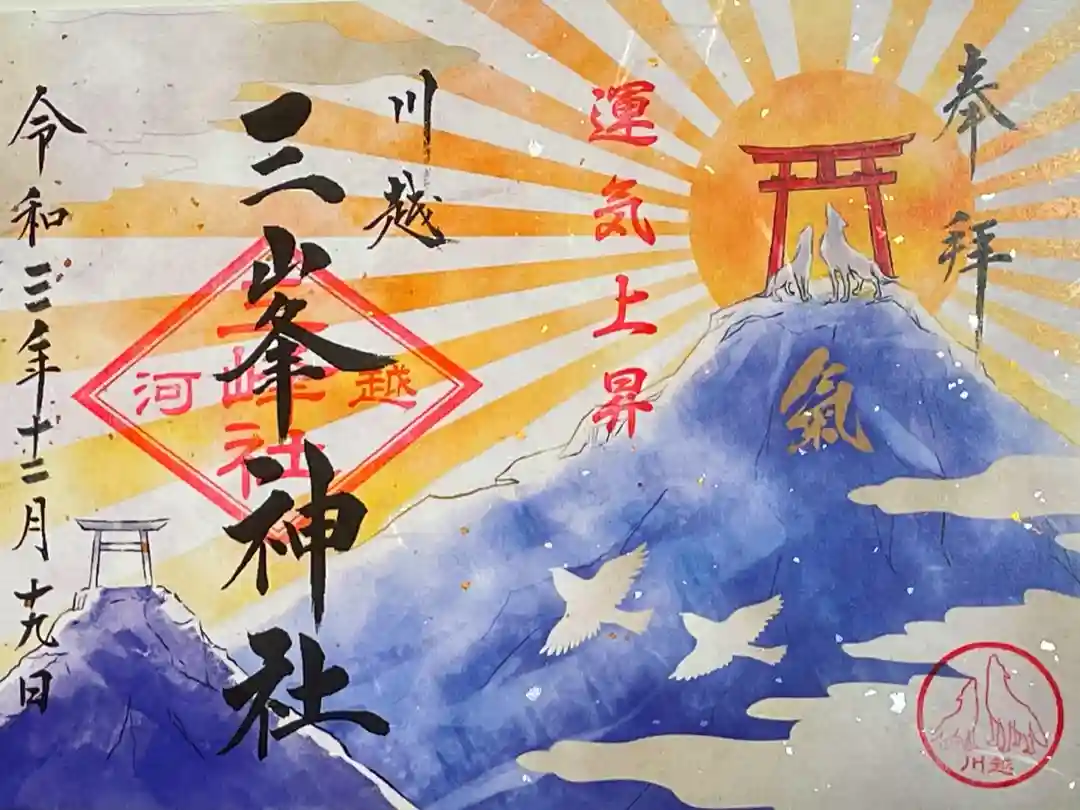 奉拝
氣
運気上昇
川越
三峯神社
三峰社
河越
令和三年十二月十九日
川越